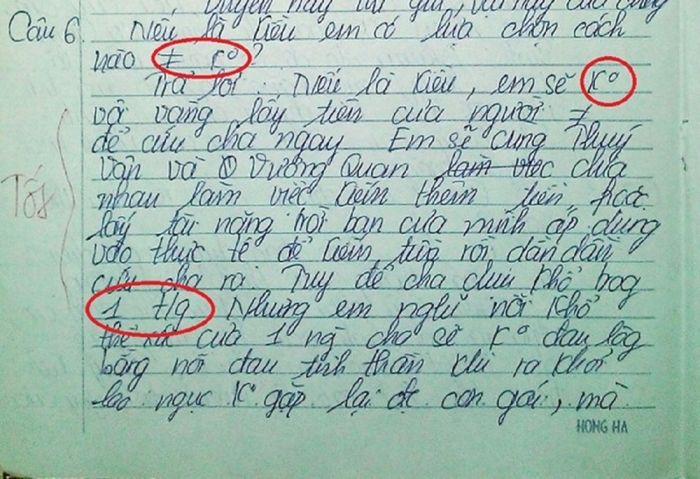 quyền này
Câu 6. Nếu là Kiều em có lựa chọn cách
nào ≠ Kº?
Trả lời: Nếu là Kiều, em sẽ Kº
vội vàng lấy tiền của người ≠
để cứu cha ngay Em sẽ cùng Thuý
Vân và Vương Quan làm việc chia
nhau làm việc kiếm thêm tiền, hoặc
lấy tài năng trời ban của mình áp dụng
vào thực tế để kiếm tiền rồi dần dần
cứu cha ra. Tuy để cha chịu khổ trog
1 t/g Nhưng em nghĩ nỗi khổ
thể xác của 1 ng cha sẽ Kº đau lòg
bằng nỗi đau tinh thần khi ra khỏi
lao ngục Kº gặp lại đc con gái, mà
Tốt
HONG HA